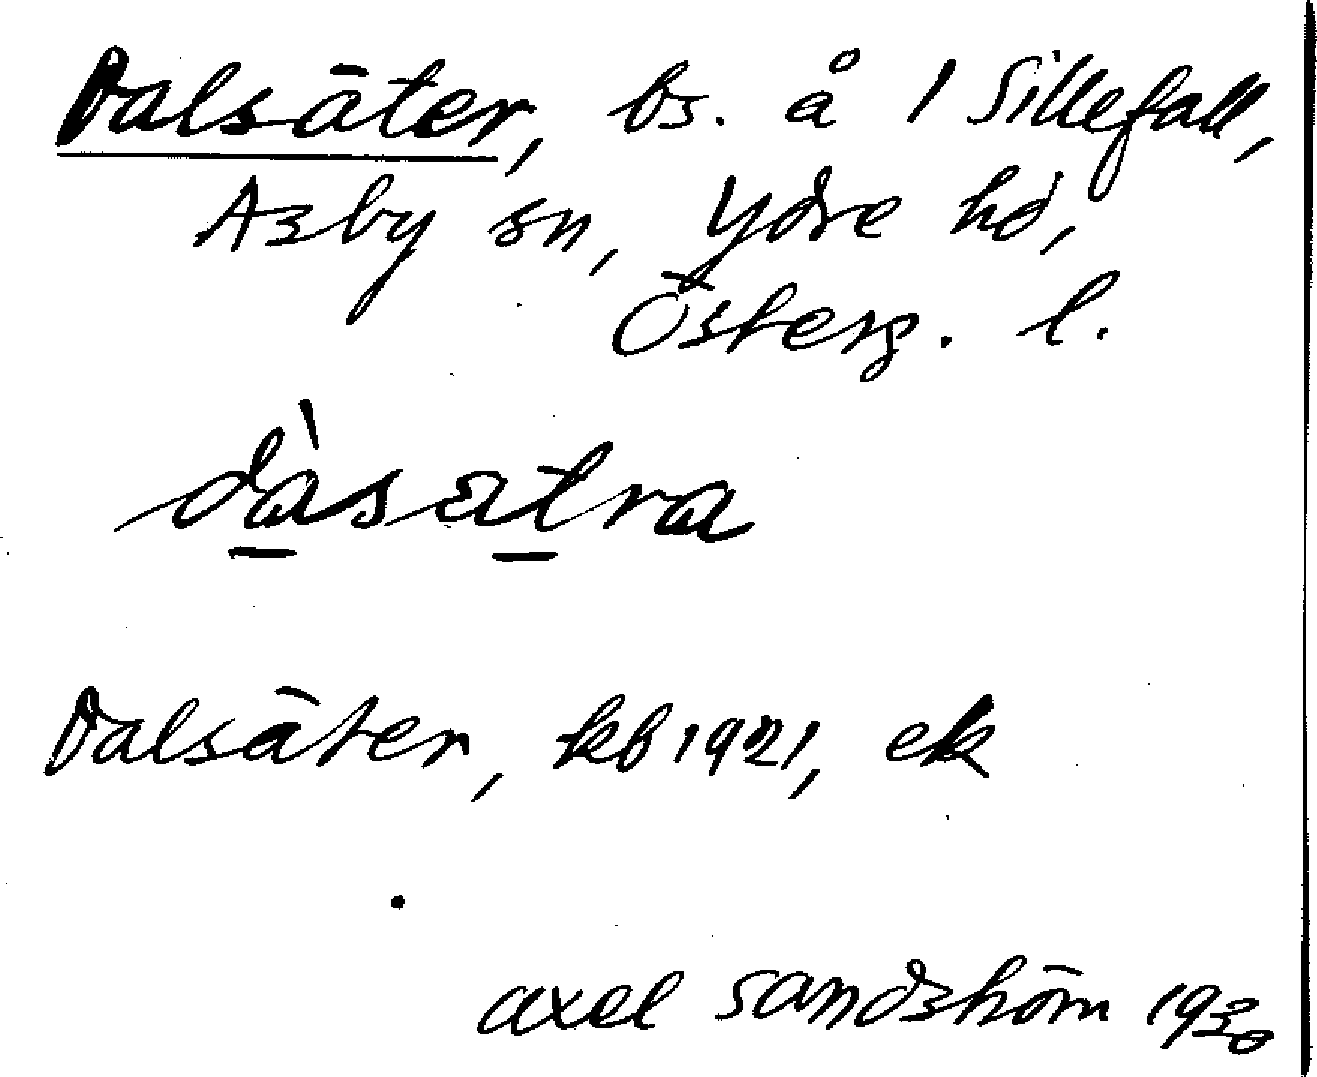 Dalsäter, bs. å 1 Sillefall,
Asby sn, Ydre hd,
Österg. l.
dàsatra
Dalsäter, kb 1921, ek
axel sandström 1930